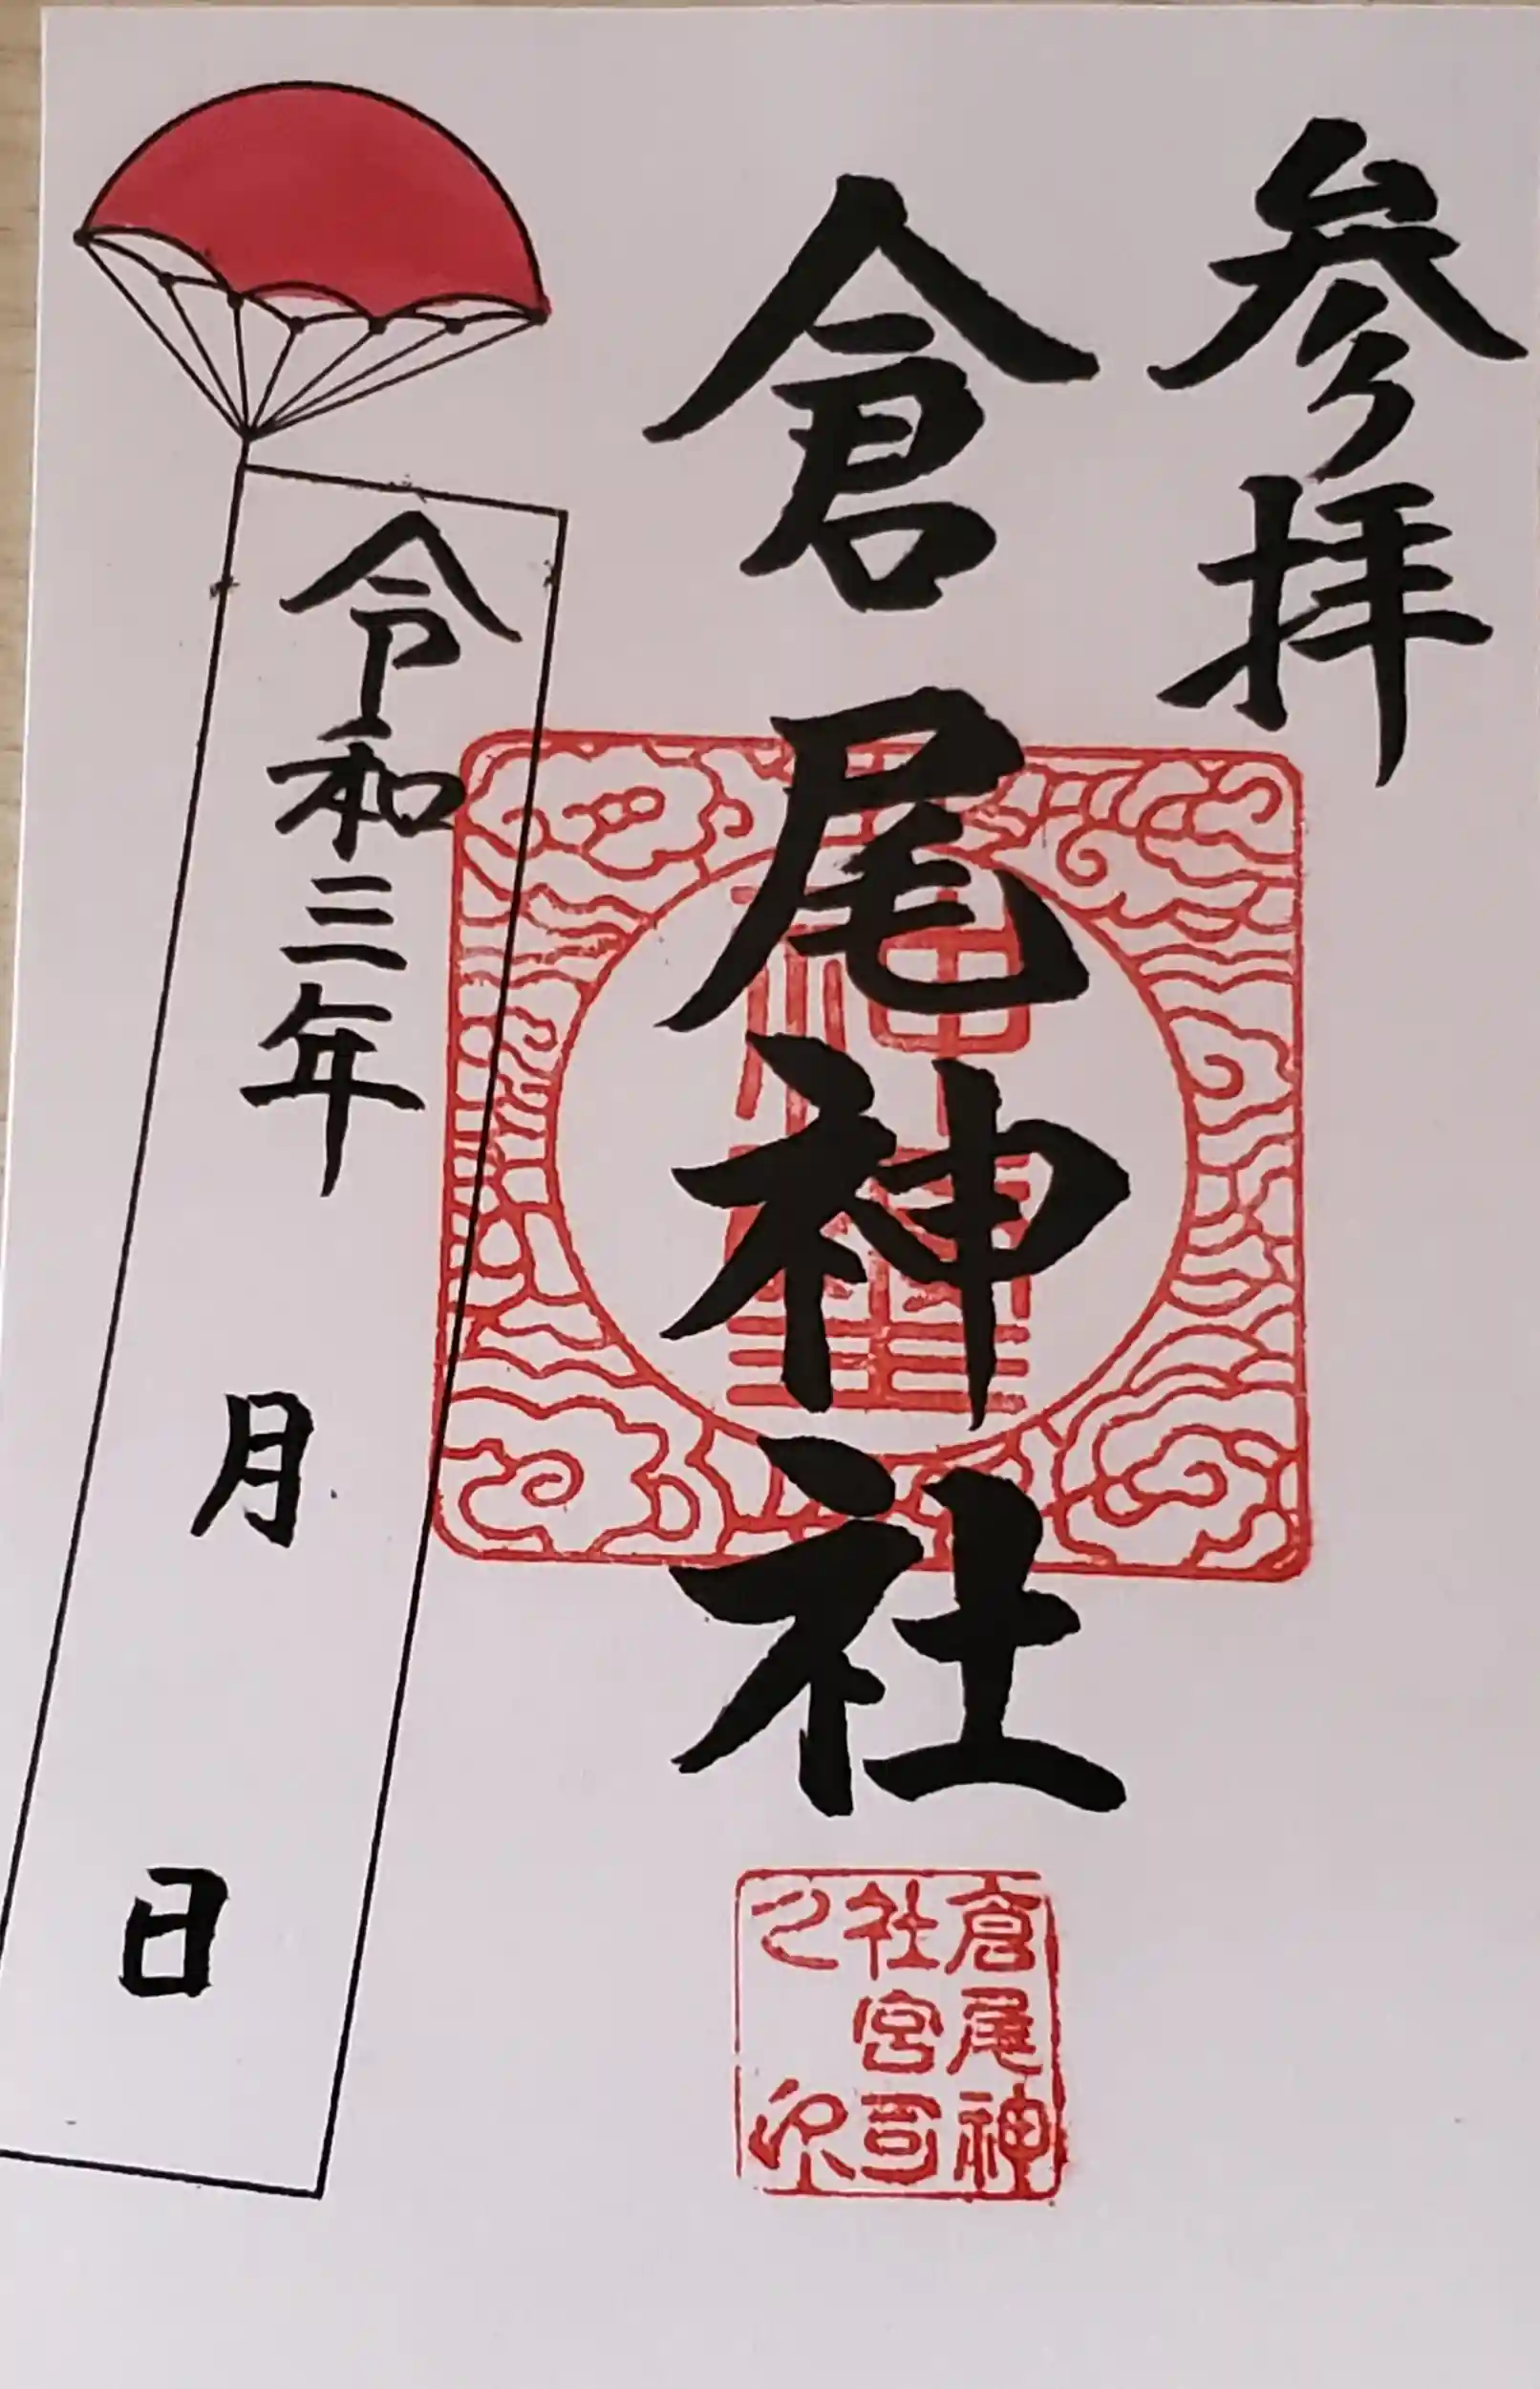 参拝
倉尾神社
令和三年 月 日
倉尾神
社宮司
之印